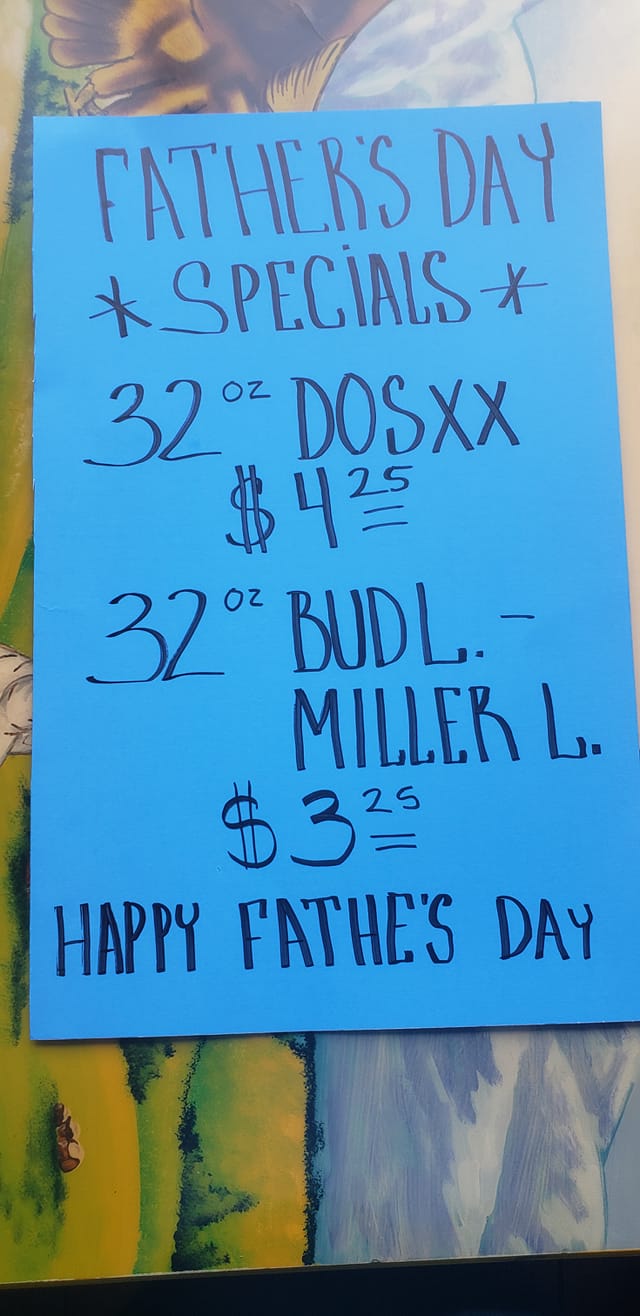 FATHER'S DAY
* SPECIALS *
32 oz DOSXX
$ 4 25
32 oz BUD L. -
MILLER L.
$ 3 25
HAPPY FATHE'S DAY